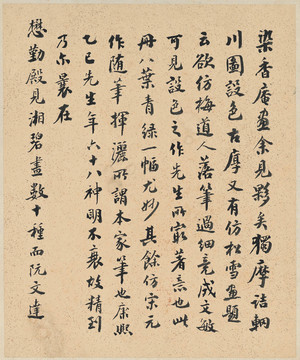 染香庵畫余見夥矣獨摩詰輞
川圖設色古厚又有仿松雪畫題
云欲仿梅道人落筆過細竟成文敏
可見設色之作先生所最著意也此
冊八葉青綠一幅尤妙其餘仿宋元
作隨筆揮灑所謂本家筆也康熙
乙巳先生年六十八神明不衰故精到
乃尓曩在
懋勤殿見湘碧畫數十種而阮文達